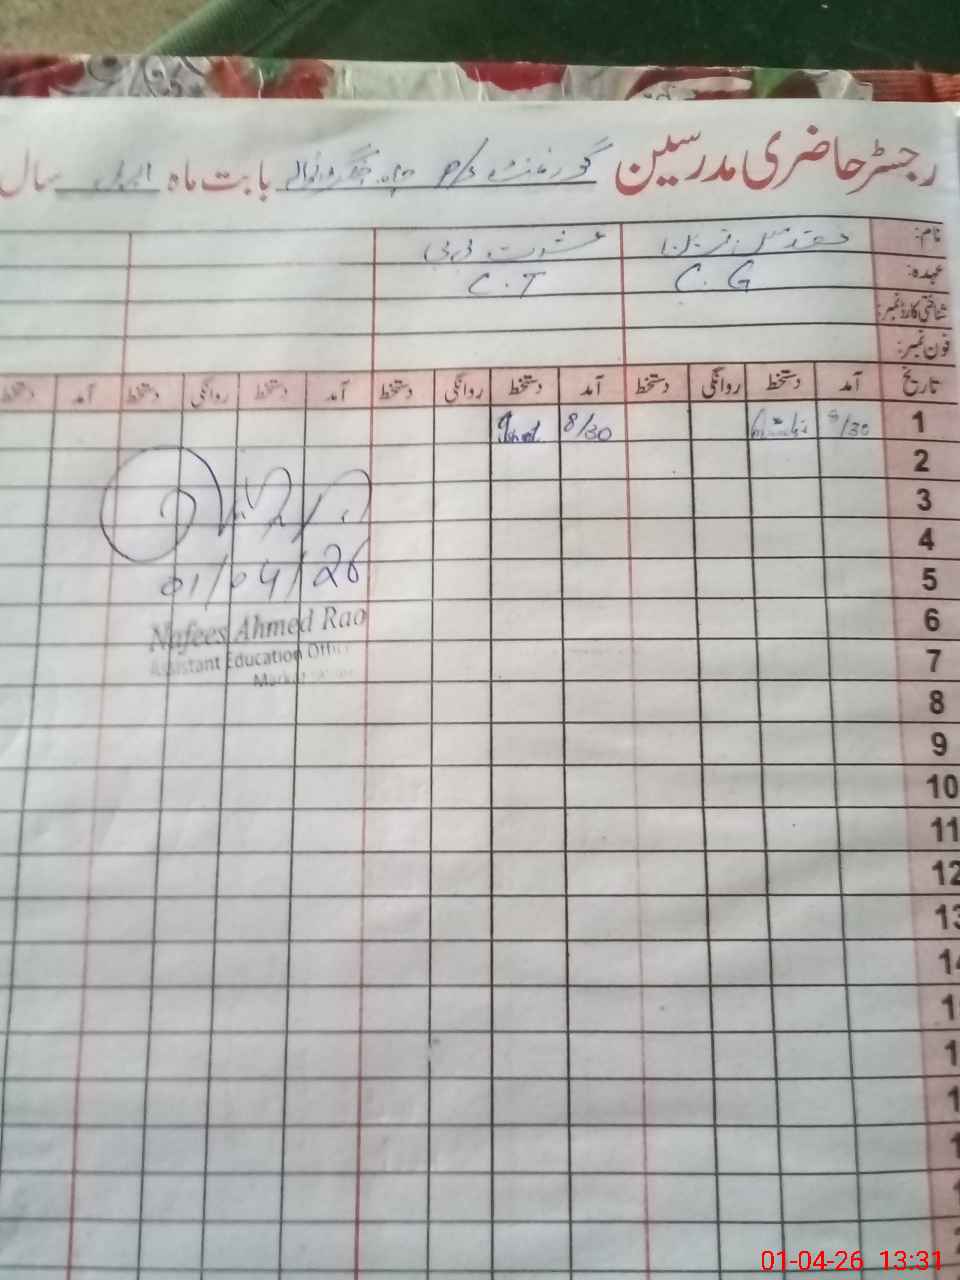 رجسٹر حاضری مدرسین گورنمنٹ P/S بابت ماہ اپریل سال
نام: عشرت بی بی
عہدہ: C.G C.T
شناختی کارڈ نمبر:
فون نمبر:
تاریخ آمد دستخط روانگی دستخط آمد دستخط روانگی دستخط آمد دستخط روانگی دستخط آمد دستخط
1 8/30 8/30 Ishrat
2
3
4
5
01/04/26
6
Nafees Ahmed Rao
7
Assistant Education Officer
8
9
10
11
12
13
01-04-26 13:31